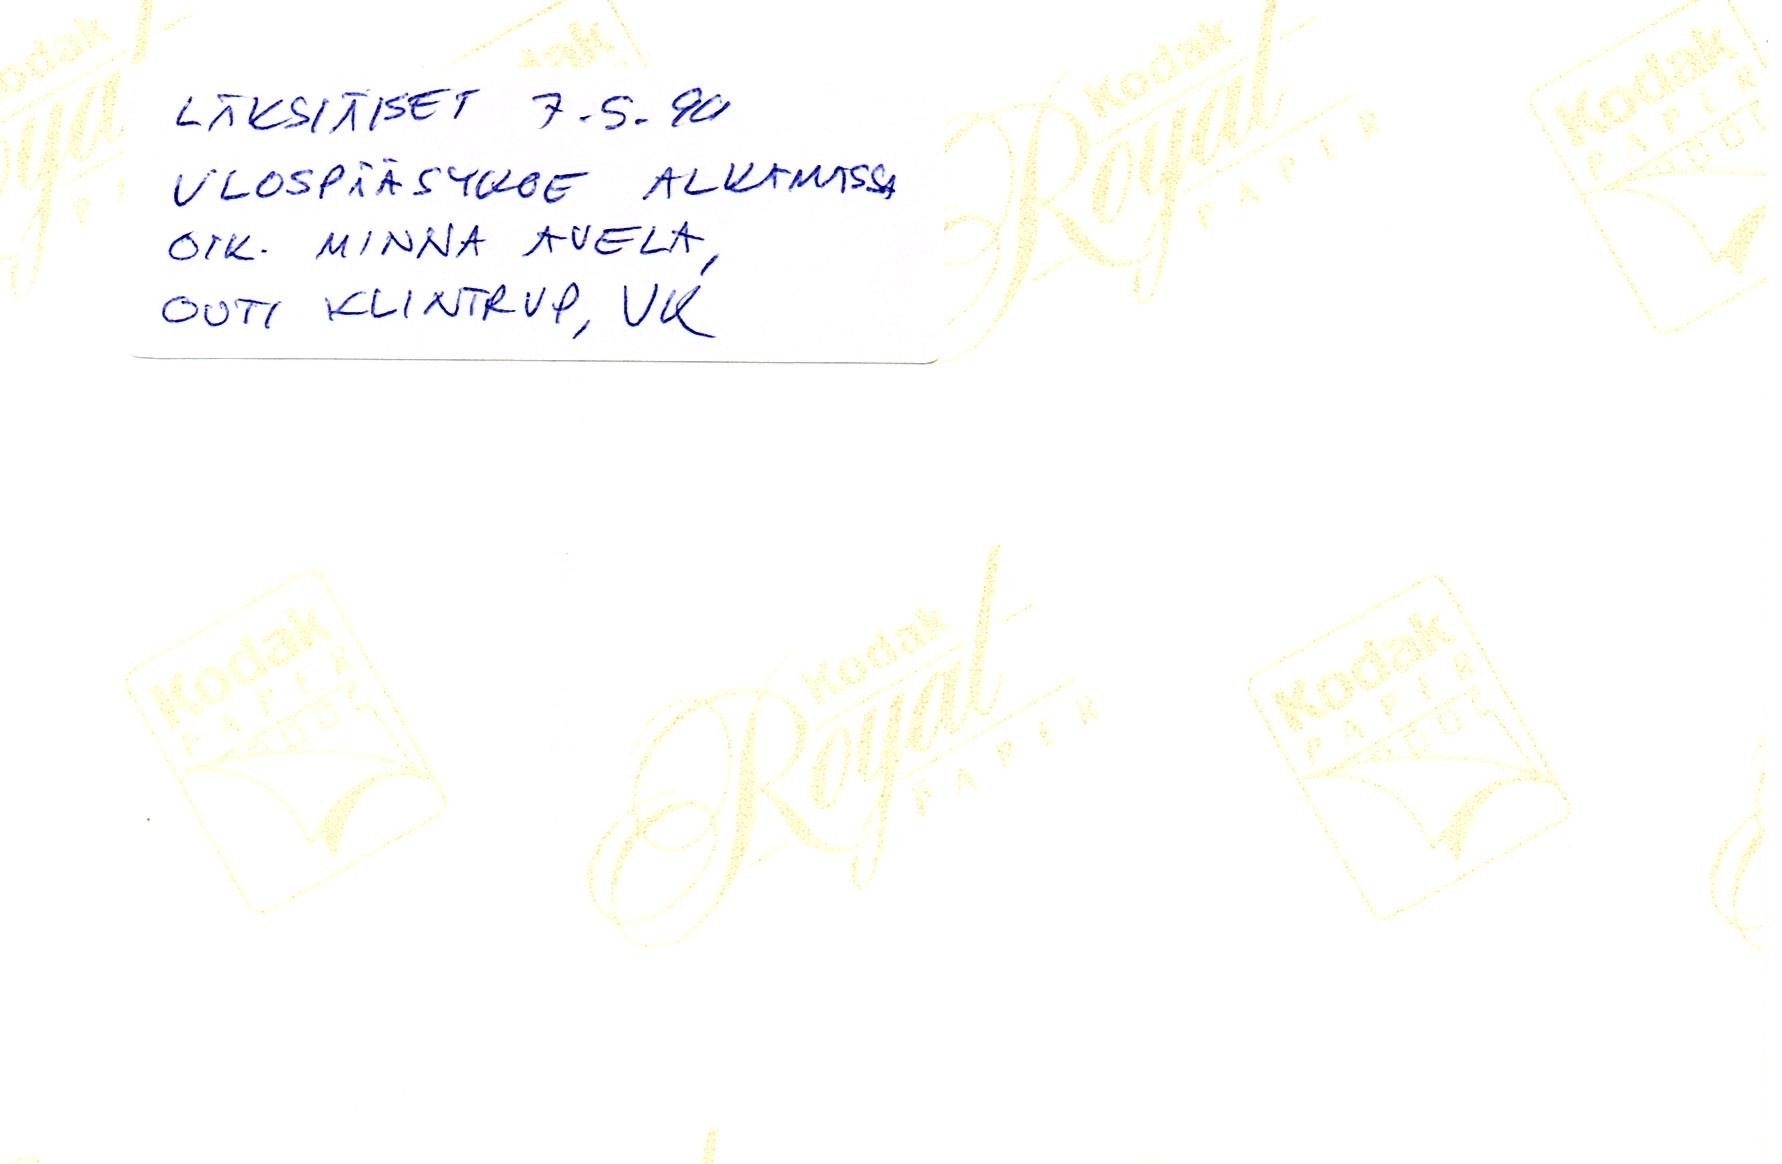 LÄKSIÄISET 7.5.90
ULOSPÄÄSYKOE ALKAMASSA
OIK. MINNA AVELA,
OUTI KLINTRUP, VK
Kodak
Royal
PAPER
Kodak
PAPER
Kodak
PAPER
Kodak
Royal
PAPER
Kodak
PAPER